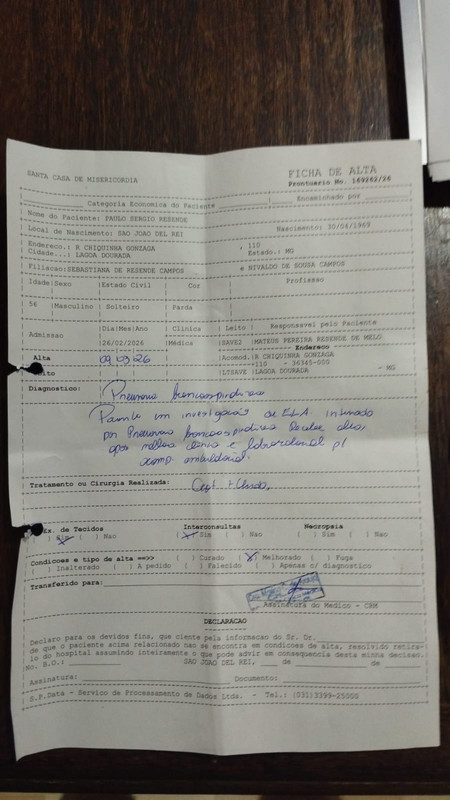 SANTA CASA DE MISERICORDIA
FICHA DE ALTA
Prontuario No. 169262/26
Categoria Economica do Paciente
Encaminhado por
Nome do Paciente: PAULO SERGIO RESENDE
Local de Nascimento: SAO JOAO DEL REI
Nascimento: 30/04/1969
Endereco.: R CHIQUINHA GONSAGA , 110
Cidade...: LAGOA DOURADA Estado.: MG
Filiacao:SEBASTIANA DE RESENDE CAMPOS e NIVALDO DE SOUSA CAMPOS
Idade|Sexo |Estado Civil Cor Profissao
56 |Masculino Solteiro Parda
|Dia|Mes|Ano |Clinica |Leito | Responsavel pelo Paciente
Admissao |26/02/2026 |Médica |SAVE2 |MATEUS PEREIRA RESENDE DE MELO
Endereco
Alta 09 03 26 Acomod.|R CHIQUINHA GONSAGA
110 - 36345-000
LTSAVE |LAGOA DOURADA - MG
Diagnostico: Pneumonia broncoaspirativa
Paciente em investigação de ELA internado
por Pneumonia broncoaspirativa. Recebe alta,
após melhora clínica e laboratorial p/
acomp. ambulatorial.
Tratamento ou Cirurgia Realizada:
Ex. de Tecidos Interconsultas Necropsia
( ) Sim ( ) Nao (X) Sim ( ) Nao ( ) Sim ( ) Nao
Condicoes e tipo de alta ==>> ( ) Curado (X) Melhorado ( ) Fuga
( ) Inalterado ( ) A pedido ( ) Falecido ( ) Apenas c/ diagnostico
Transferido para:
Assinatura do Medico - CRM
DECLARACAO
Declaro para os devidos fins, que ciente pela informacao do Sr. Dr.
de que o paciente acima relacionado nao se encontra em condicoes de alta, resolvido retira-
lo do hospital assumindo inteiramente o que pode advir em consequencia desta minha decisao.
No. B.O.: SAO JOAO DEL REI, de de
Assinatura: Documento:
S.P.Data - Servico de Processamento de Dados Ltda. - Tel.: (031)3399-25000